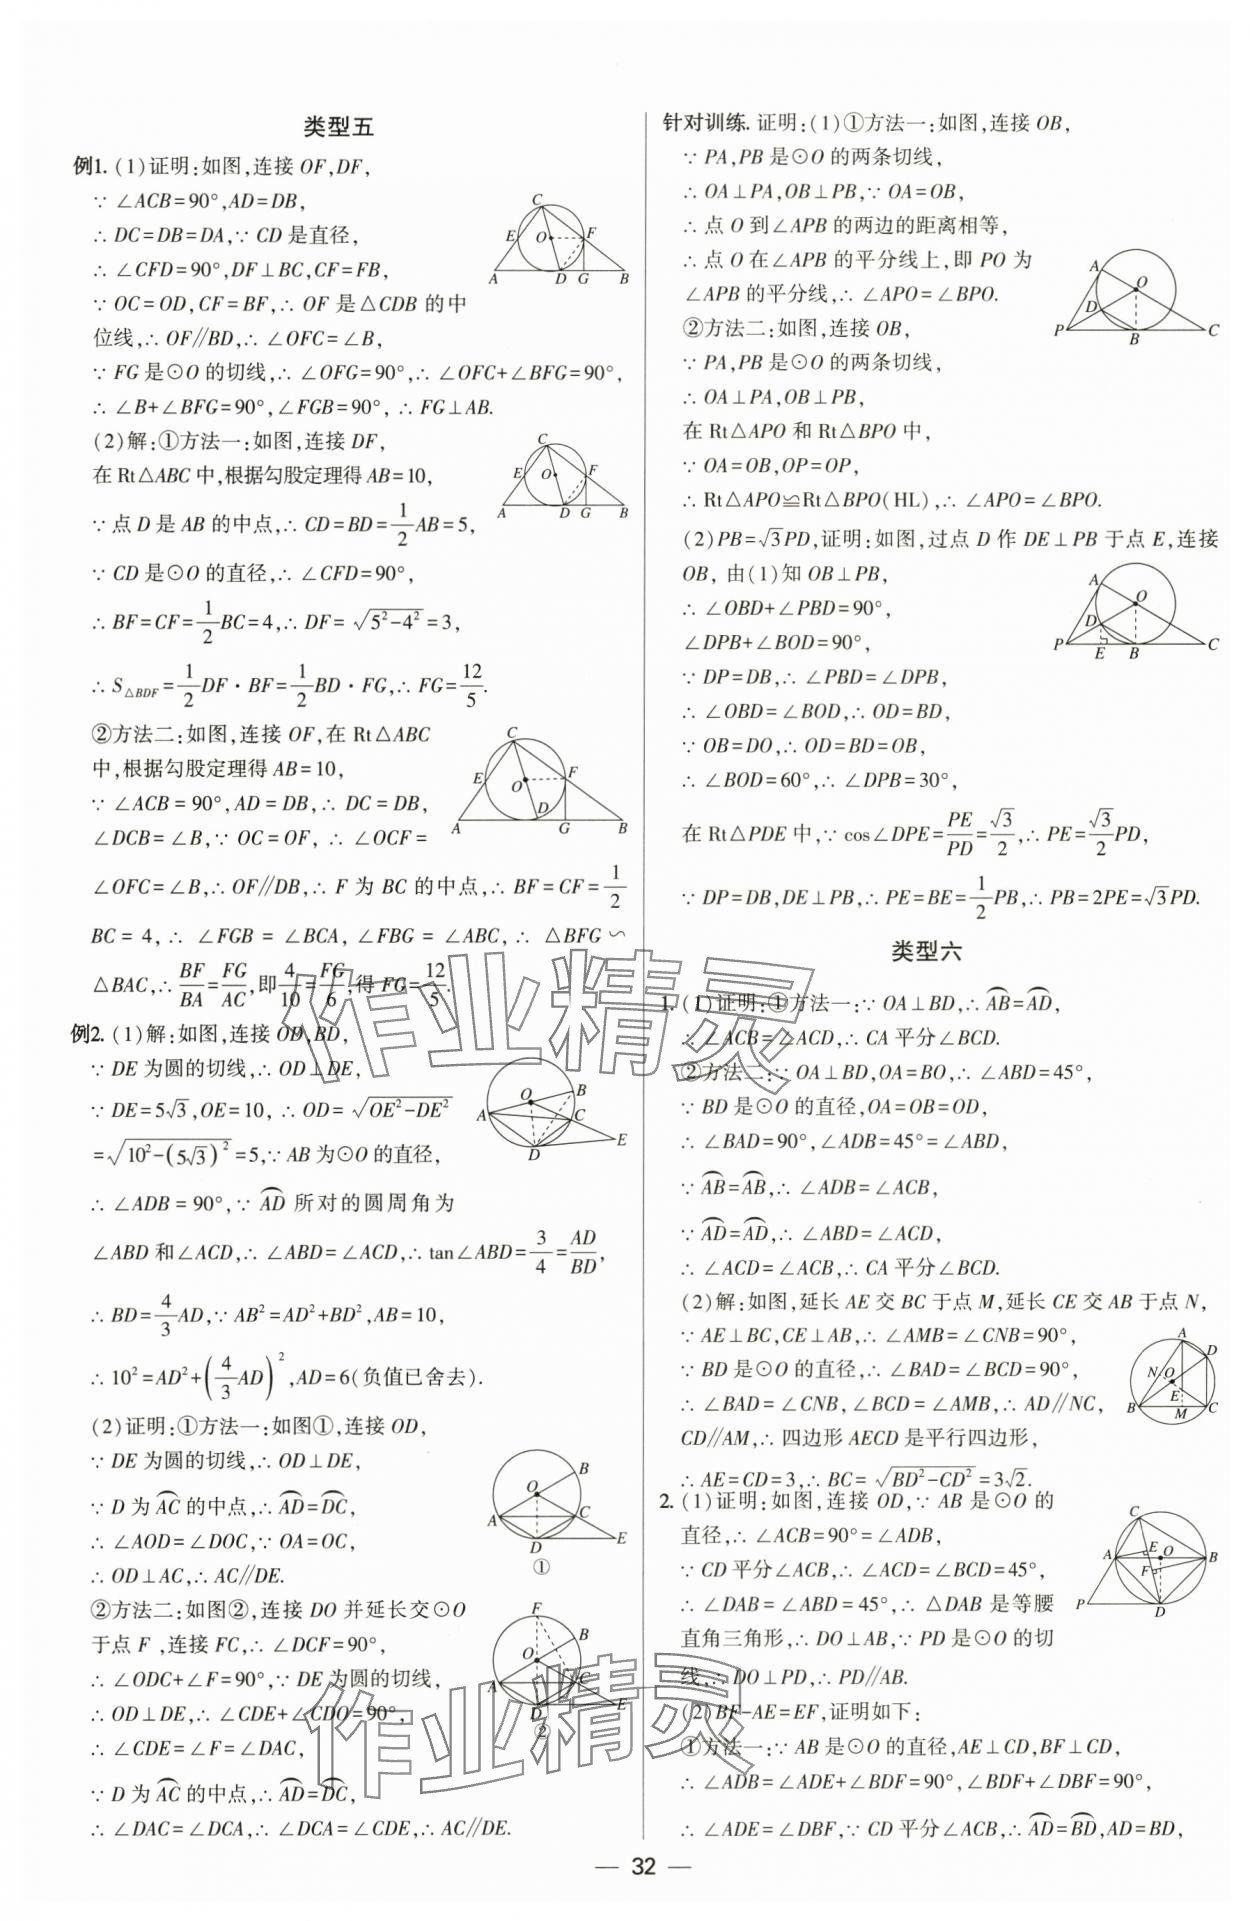 类型五
例1. (1)证明:如图,连接 OF,DF,
∵ ∠ACB=90°,AD=DB,
∴ DC=DB=DA,∵ CD 是直径,
∴ ∠CFD=90°,DF⊥BC,CF=FB,
∵ OC=OD,CF=BF,∴ OF 是△CDB 的中
位线,∴ OF∥BD,∴ ∠OFC=∠B,
∵ FG 是⊙O 的切线,∴ ∠OFG=90°,∴ ∠OFC+∠BFG=90°,
∴ ∠B+∠BFG=90°,∠FGB=90°, ∴ FG⊥AB.
(2)解:①方法一:如图,连接 DF,
在 Rt△ABC 中,根据勾股定理得 AB=10,
∵ 点 D 是 AB 的中点,∴ CD=BD=1/2AB=5,
∵ CD 是⊙O 的直径,∴ ∠CFD=90°,
∴ BF=CF=1/2BC=4,∴ DF=√(5²-4²)=3,
∴ S△BDF=1/2DF·BF=1/2BD·FG,∴ FG=12/5.
②方法二:如图,连接 OF,在 Rt△ABC
中,根据勾股定理得 AB=10,
∵ ∠ACB=90°,AD=DB,∴ DC=DB,
∠DCB=∠B,∵ OC=OF, ∴ ∠OCF=
∠OFC=∠B,∴ OF∥DB,∴ F 为 BC 的中点,∴ BF=CF=1/2
BC=4,∴ ∠FGB=∠BCA,∠FBG=∠ABC,∴ △BFG∽
△BAC,∴ BF/BA=FG/AC,即4/10=FG/6,得 FG=12/5.
例2. (1)解:如图,连接 OD,BD,
∵ DE 为圆的切线,∴ OD⊥DE,
∵ DE=5√3,OE=10, ∴ OD=√(OE²-DE²)
=√(10²-(5√3)²)=5,∵ AB 为⊙O 的直径,
∴ ∠ADB=90°,∵ ⌒AD 所对的圆周角为
∠ABD 和∠ACD,∴ ∠ABD=∠ACD,∴ tan∠ABD=3/4=AD/BD,
∴ BD=4/3AD,∵ AB²=AD²+BD²,AB=10,
∴ 10²=AD²+(4/3AD)²,AD=6(负值已舍去).
(2)证明:①方法一:如图①,连接 OD,
∵ DE 为圆的切线,∴ OD⊥DE,
∵ D 为⌒AC的中点,∴ ⌒AD=⌒DC,
∴ ∠AOD=∠DOC,∵ OA=OC,
∴ OD⊥AC,∴ AC∥DE.
②方法二:如图②,连接 DO 并延长交⊙O
于点 F ,连接 FC,∴ ∠DCF=90°,
∴ ∠ODC+∠F=90°,∵ DE 为圆的切线,
∴ OD⊥DE,∴ ∠CDE+∠CDO=90°,
∴ ∠CDE=∠F=∠DAC,
∵ D 为⌒AC的中点,∴ ⌒AD=⌒DC,
∴ ∠DAC=∠DCA,∴ ∠DCA=∠CDE,∴ AC∥DE.
针对训练. 证明:(1)①方法一:如图,连接 OB,
∵ PA,PB 是⊙O 的两条切线,
∴ OA⊥PA,OB⊥PB,∵ OA=OB,
∴ 点 O 到∠APB 的两边的距离相等,
∴ 点 O 在∠APB 的平分线上,即 PO 为
∠APB 的平分线,∴ ∠APO=∠BPO.
②方法二:如图,连接 OB,
∵ PA,PB 是⊙O 的两条切线,
∴ OA⊥PA,OB⊥PB,
在 Rt△APO 和 Rt△BPO 中,
∵ OA=OB,OP=OP,
∴ Rt△APO≌Rt△BPO(HL),∴ ∠APO=∠BPO.
(2)PB=√3PD,证明:如图,过点 D 作 DE⊥PB 于点 E,连接
OB, 由(1)知 OB⊥PB,
∴ ∠OBD+∠PBD=90°,
∠DPB+∠BOD=90°,
∵ DP=DB,∴ ∠PBD=∠DPB,
∴ ∠OBD=∠BOD,∴ OD=BD,
∵ OB=DO,∴ OD=BD=OB,
∴ ∠BOD=60°,∴ ∠DPB=30°,
在 Rt△PDE 中,∵ cos∠DPE=PE/PD=√3/2,∴ PE=√3/2PD,
∵ DP=DB,DE⊥PB,∴ PE=BE=1/2PB,∴ PB=2PE=√3PD.
类型六
1. (1)证明:①方法一:∵ OA⊥BD,∴ ⌒AB=⌒AD,
∴ ∠ACB=∠ACD,∴ CA 平分∠BCD.
②方法二:∵ OA⊥BD,OA=BO,∴ ∠ABD=45°,
∵ BD 是⊙O 的直径,OA=OB=OD,
∴ ∠BAD=90°,∠ADB=45°=∠ABD,
∵ ⌒AB=⌒AB,∴ ∠ADB=∠ACB,
∵ ⌒AD=⌒AD,∴ ∠ABD=∠ACD,
∴ ∠ACD=∠ACB,∴ CA 平分∠BCD.
(2)解:如图,延长 AE 交 BC 于点 M,延长 CE 交 AB 于点 N,
∵ AE⊥BC,CE⊥AB,∴ ∠AMB=∠CNB=90°,
∵ BD 是⊙O 的直径,∴ ∠BAD=∠BCD=90°,
∴ ∠BAD=∠CNB,∠BCD=∠AMB,∴ AD∥NC,
CD∥AM,∴ 四边形 AECD 是平行四边形,
∴ AE=CD=3,∴ BC=√(BD²-CD²)=3√2.
2. (1)证明:如图,连接 OD,∵ AB 是⊙O 的
直径,∴ ∠ACB=90°=∠ADB,
∵ CD 平分∠ACB,∴ ∠ACD=∠BCD=45°,
∴ ∠DAB=∠ABD=45°,∴ △DAB 是等腰
直角三角形,∴ DO⊥AB,∵ PD 是⊙O 的切
线,∴ DO⊥PD,∴ PD∥AB.
(2)BF-AE=EF,证明如下:
①方法一:∵ AB 是⊙O 的直径,AE⊥CD,BF⊥CD,
∴ ∠ADB=∠ADE+∠BDF=90°,∠BDF+∠DBF=90°,
∴ ∠ADE=∠DBF,∵ CD 平分∠ACB,∴ ⌒AD=⌒BD,AD=BD,
— 32 —
作业精灵
作业精灵